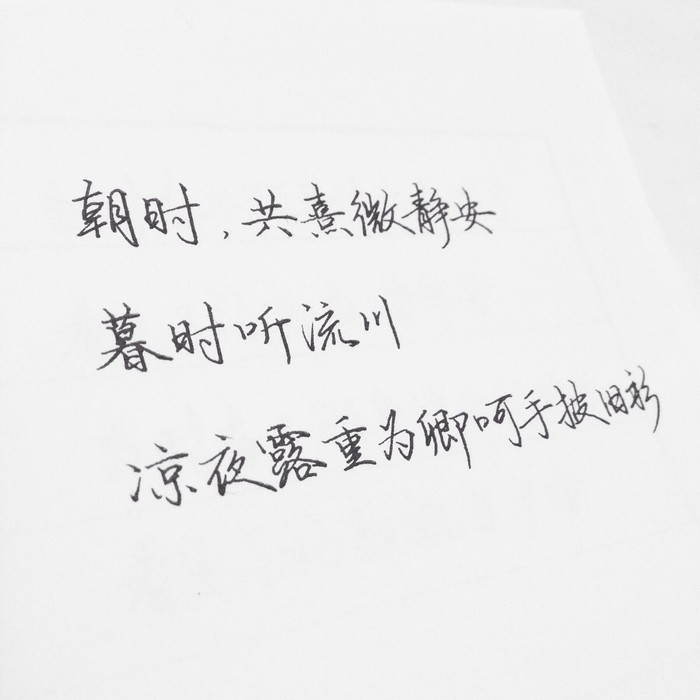 朝时,共熹微静安
暮时听流川
凉夜露重为卿呵手披旧衫